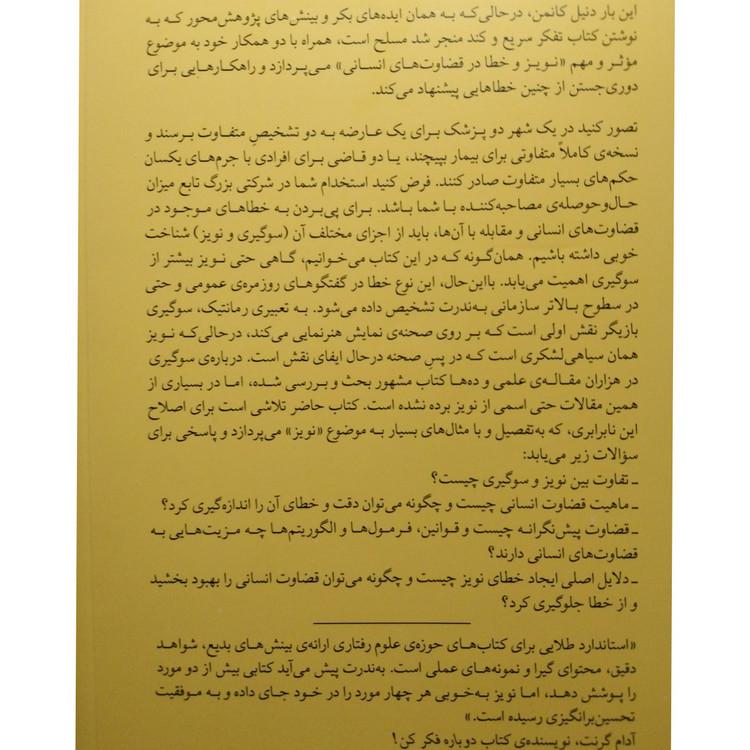 این بار دنیل کانمن، درحالی‌که به همان ایده‌های بکر و بینش‌های پژوهش‌محور که به
نوشتن کتاب تفکر سریع و کند منجر شد مسلح است، همراه با دو همکار خود به موضوع
مؤثر و مهم «نویز و خطا در قضاوت‌های انسانی» می‌پردازد و راهکارهایی برای
دوری‌جستن از چنین خطاهایی پیشنهاد می‌کند.
تصور کنید در یک شهر دو پزشک برای یک عارضه به دو تشخیصِ متفاوت برسند و
نسخه‌ی کاملاً متفاوتی برای بیمار بپیچند، یا دو قاضی برای افرادی با جرم‌های یکسان
حکم‌های بسیار متفاوت صادر کنند. فرض کنید استخدام شما در شرکتی بزرگ تابع میزان
حال‌وحوصله‌ی مصاحبه‌کننده با شما باشد. برای پی‌بردن به خطاهای موجود در
قضاوت‌های انسانی و مقابله با آن‌ها، باید از اجزای مختلف آن (سوگیری و نویز) شناخت
خوبی داشته باشیم. همان‌گونه که در این کتاب می‌خوانیم، گاهی حتی نویز بیشتر از
سوگیری اهمیت می‌یابد. بااین‌حال، این نوع خطا در گفتگوهای روزمره‌ی عمومی و حتی
در سطوح بالاتر سازمانی به‌ندرت تشخیص داده می‌شود. به تعبیری رمانتیک، سوگیری
بازیگر نقش اولی است که بر روی صحنه‌ی نمایش هنرنمایی می‌کند، درحالی‌که نویز
همان سیاهی‌لشکری است که در پسِ صحنه درحال ایفای نقش است. درباره‌ی سوگیری
در هزاران مقاله‌ی علمی و ده‌ها کتاب مشهور بحث و بررسی شده، اما در بسیاری از
همین مقالات حتی اسمی از نویز برده نشده است. کتاب حاضر تلاشی است برای اصلاح
این نابرابری، که به‌تفصیل و با مثال‌های بسیار به موضوع «نویز» می‌پردازد و پاسخی برای
سؤالات زیر می‌یابد:
ـ تفاوت بین نویز و سوگیری چیست؟
ـ ماهیت قضاوت انسانی چیست و چگونه می‌توان دقت و خطای آن را اندازه‌گیری کرد؟
ـ قضاوت پیش‌نگرانه چیست و قوانین، فرمول‌ها و الگوریتم‌ها چه مزیت‌هایی به
قضاوت‌های انسانی دارند؟
ـ دلایل اصلی ایجاد خطای نویز چیست و چگونه می‌توان قضاوت انسانی را بهبود بخشید
و از خطا جلوگیری کرد؟
«استاندارد طلایی برای کتاب‌های حوزه‌ی علوم رفتاری ارائه‌ی بینش‌های بدیع، شواهد
دقیق، محتوای گیرا و نمونه‌های عملی است. به‌ندرت پیش می‌آید کتابی بیش از دو مورد
را پوشش دهد، اما نویز به‌خوبی هر چهار مورد را در خود جای داده و به موفقیت
تحسین‌برانگیزی رسیده است.»
آدام گرنت، نویسنده‌ی کتاب دوباره فکر کن!